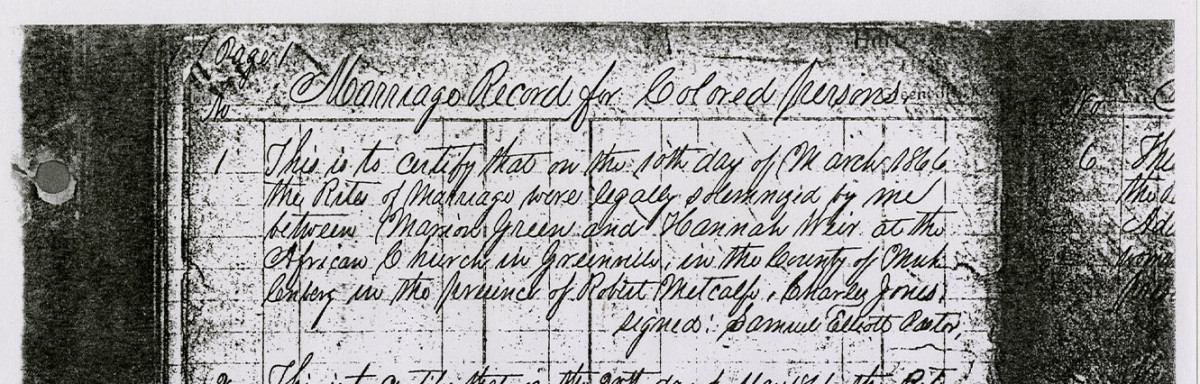 Page 1
No
Marriage Record for Colored Persons
1 This is to certify that on the 10th day of March 1866
the Rites of Marriage were legally solemnized by me
between Marion Green and Hannah Weir at the
African Church in Greenville, in the County of Muh
lenberg in the presence of Robert Metcalfe, Charley Jones,
signed: Samuel Elliott Pastor,
2 This is to certify that on the
No
6 This
the